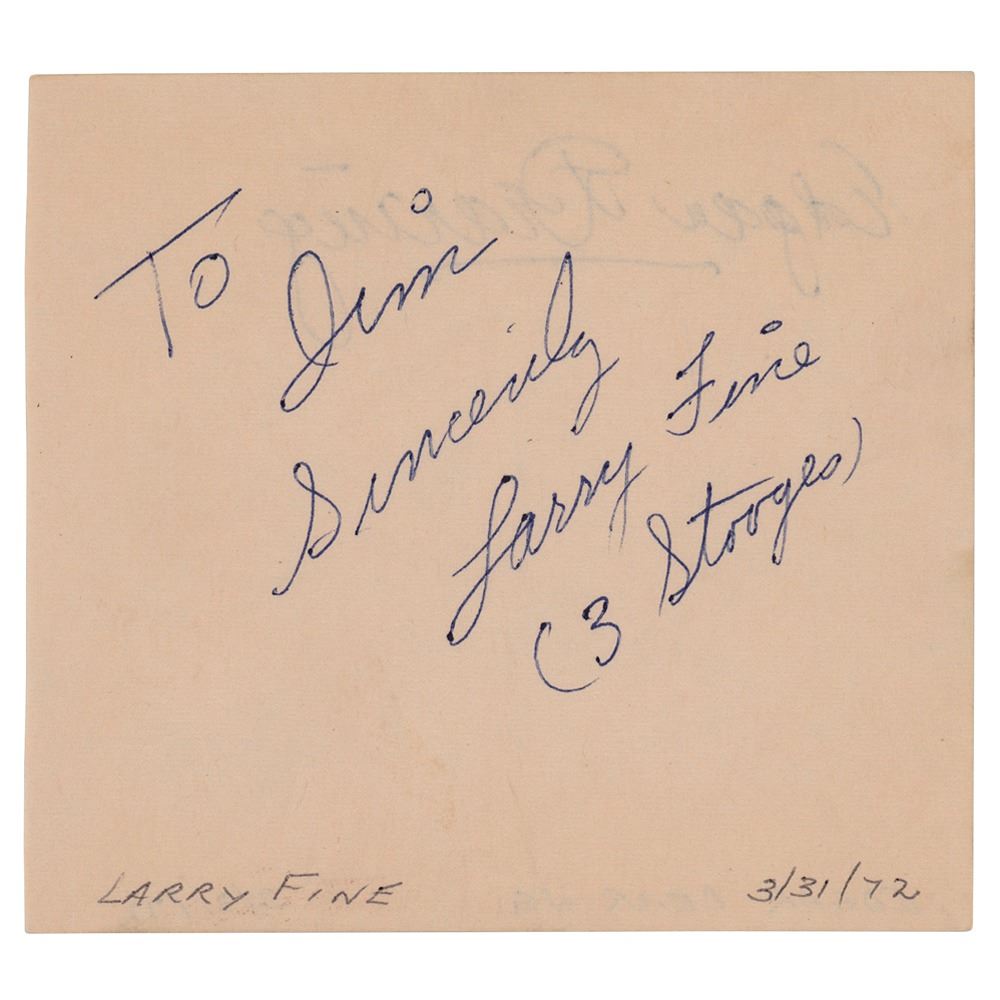 To Jim
Sincerely
Larry Fine
(3 Stooges)
LARRY FINE 3/31/72